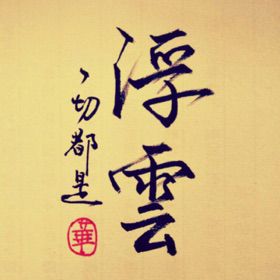 一切都是
浮雲
華